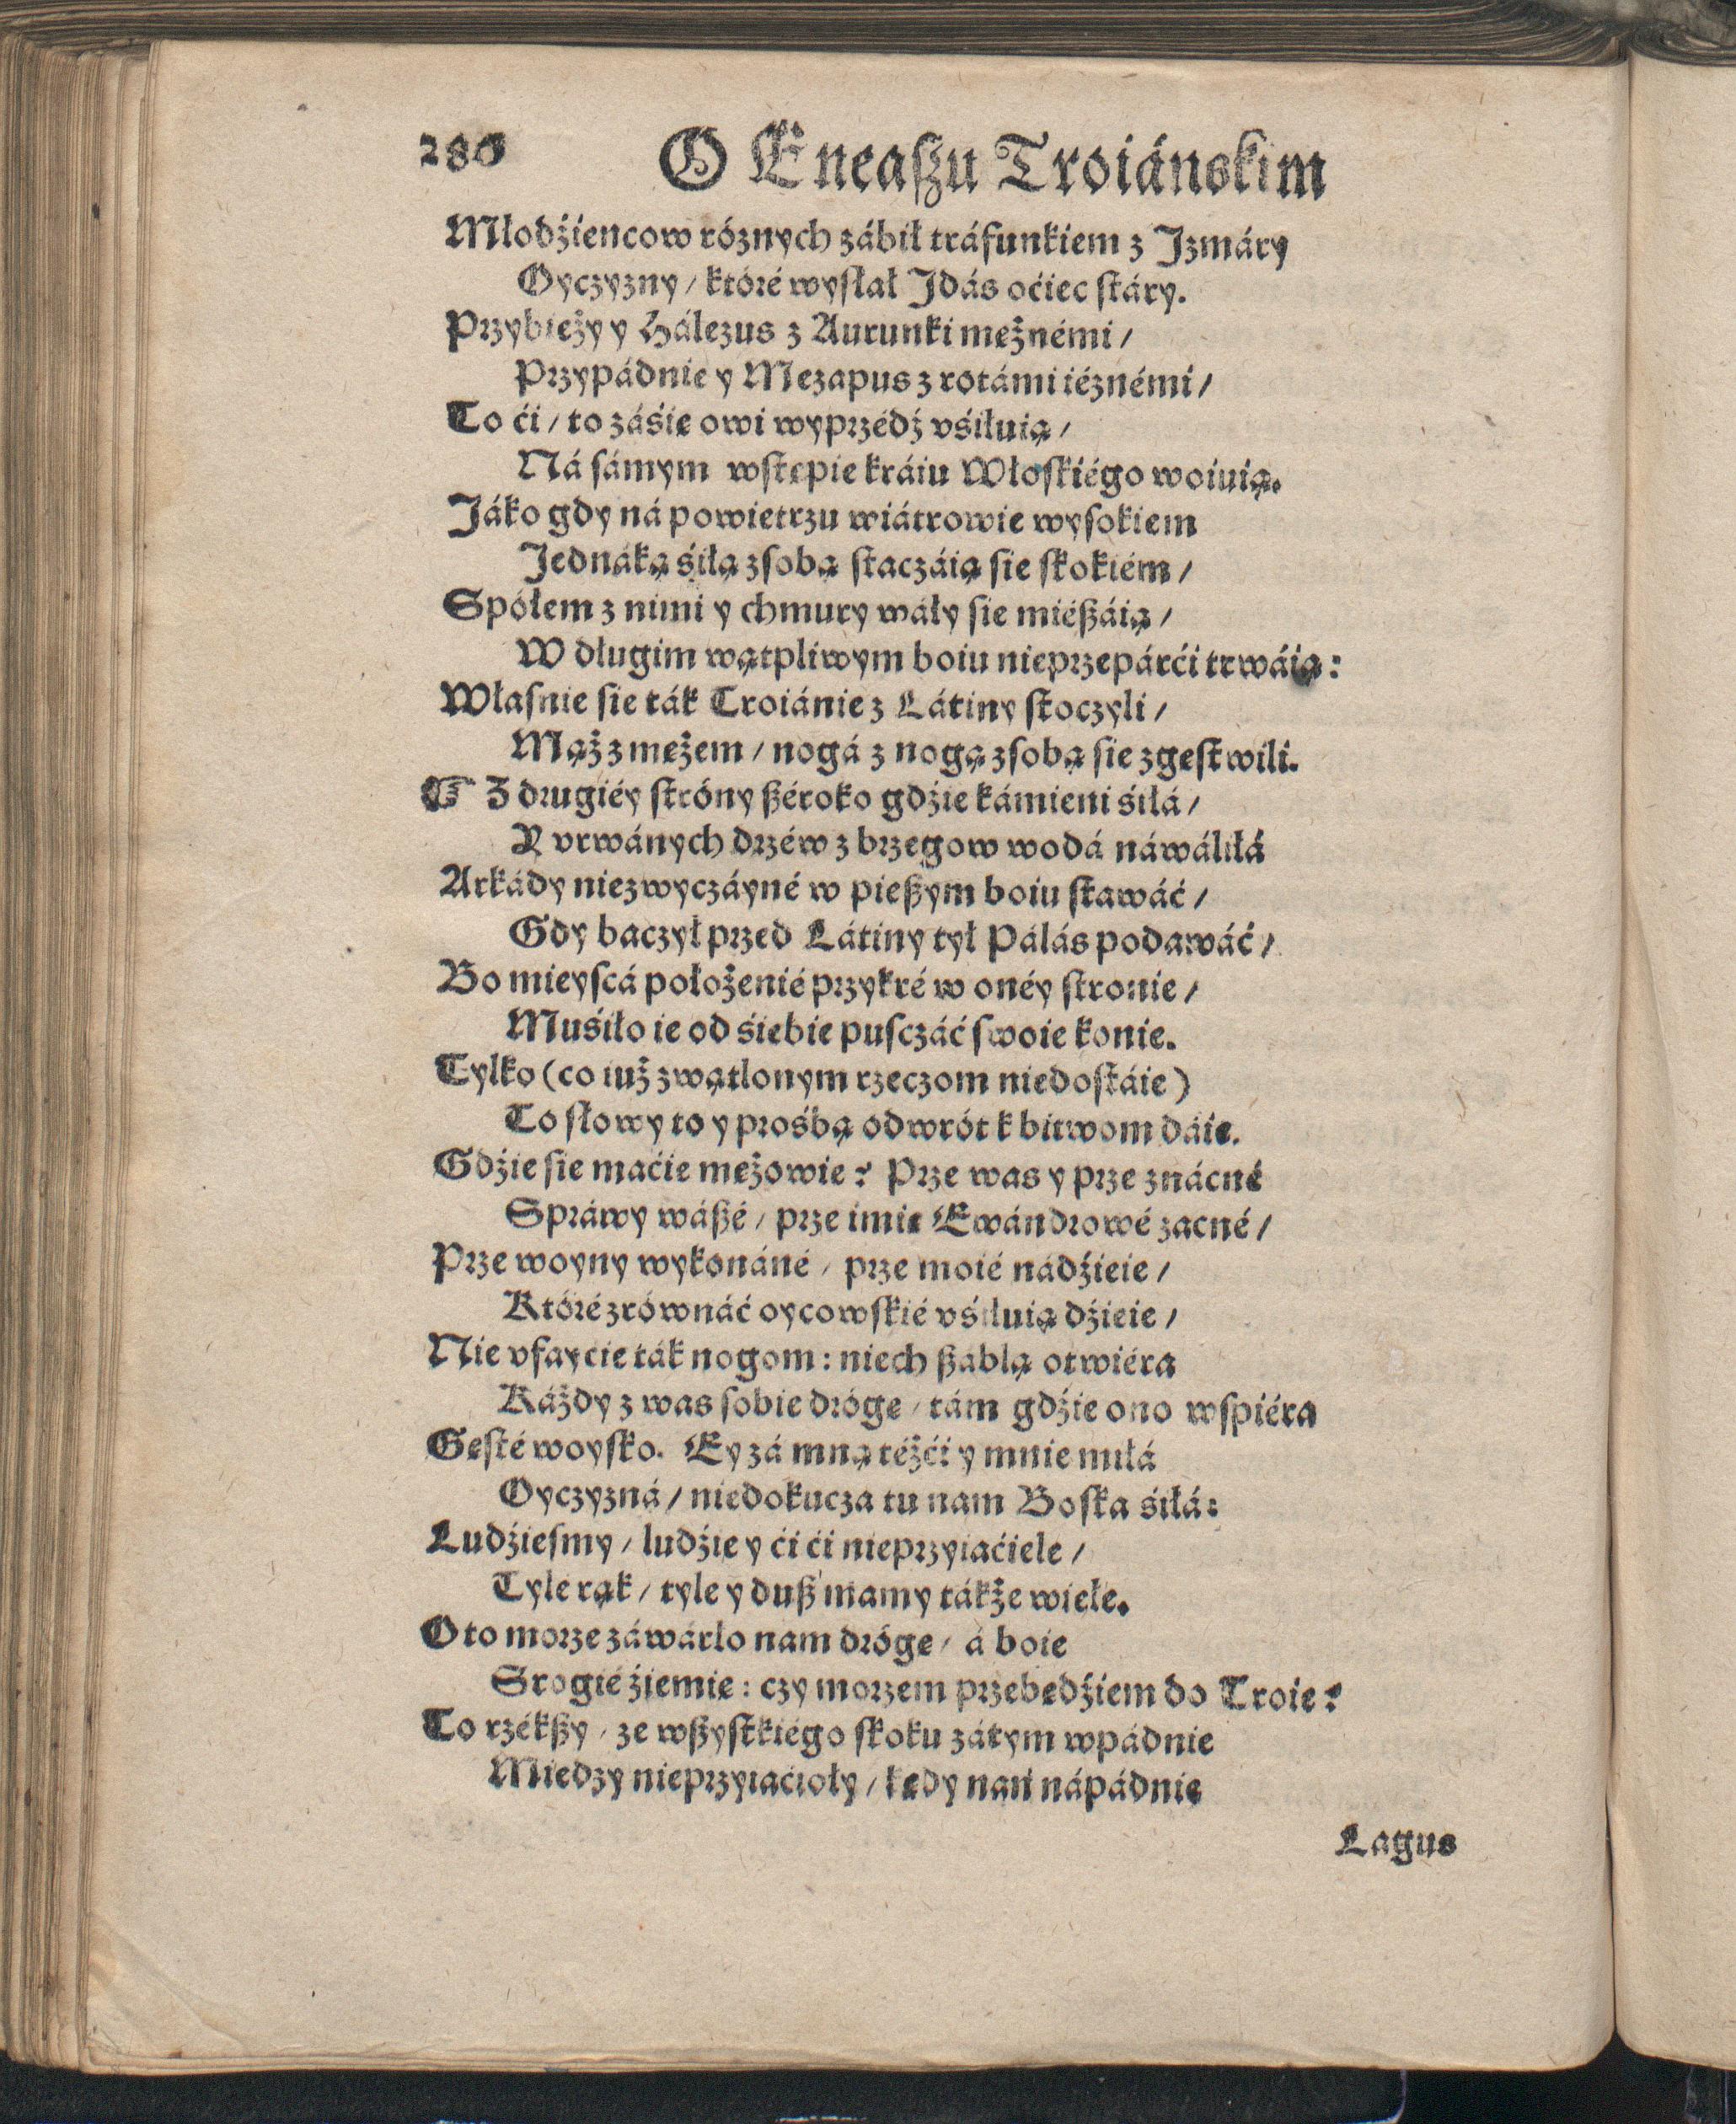 280 O Eneaſzu Troiánskim
Młodźiencow róznych zábił tráfunkiem z Jzmáry
Oyczyzny / któré wysłał Jdás oćiec ſtáry.
Przybieży y Hálezus z Aurunki mężnémi /
Przypádnie y Mezapus z rotámi iéznémi /
To ći / to záśię owi wyprzédź vśiłuią /
Ná ſámym wſtępie kráiu Włoſkiégo woiuią.
Jáko gdy ná powietrzu wiátrowie wyſokiem
Jednáką śiłą zſobą ſtaczáią ſie ſkokiém /
Spółem z nimi y chmury wáły ſie miéßáią /
W długim wątpliwym boiu nieprzepárći trwáią:
Właſnie ſie ták Troiánie z Látiny ſtoczyli /
Mąż z mężem / nogá z nogą zſobą ſie zgęſtwili.
☞ Z drugiéy ſtróny ßéroko gdźie kámieni śiłá /
Y vrwánych drzéw z brzegow wodá náwáliłá
Arkády niezwyczáyné w pießym boiu ſtawáć /
Gdy baczył przed Látiny tył Pálás podawáć /
Bo mieyſcá położenié przykré w onéy ſtronie /
Muśiło ie od śiebie puſczáć ſwoie konie.
Tylko (co iuż zwątlonym rzeczom niedoſtáie)
To ſłowy to y prośbą odwrót k bitwom dáie.
Gdźie ſie maćie mężowie? Prze was y prze znácné
Spráwy wáßé / prze imię Ewándrowé zacné /
Prze woyny wykonáné / prze moié nádźieie /
Któré zrównáć oycowſkié vśiłuią dźieie /
Nie vfaycie ták nogom: niech ßáblą otwiéra
Káżdy z was ſobie drógę / tám gdźie ono wſpiéra
Gęſté woyſko. Ey zá mną téżći y mnie miłá
Oyczyzná / niedokucza tu nam Boſka śiłá:
Ludźieſmy / ludźie y ći ći nieprzyiaćiele /
Tyle rąk / tyle y duß mamy tákże wiele.
Oto morze záwárło nam drógę / á boię
Srogié źiemię: czy morzem przebędźiem do Troie?
To rzékßy / ze wßyſtkiégo ſkoku zátym wpádnie
Miedzy nieprzyiaćioły / kędy nań nápádnie
Lagus